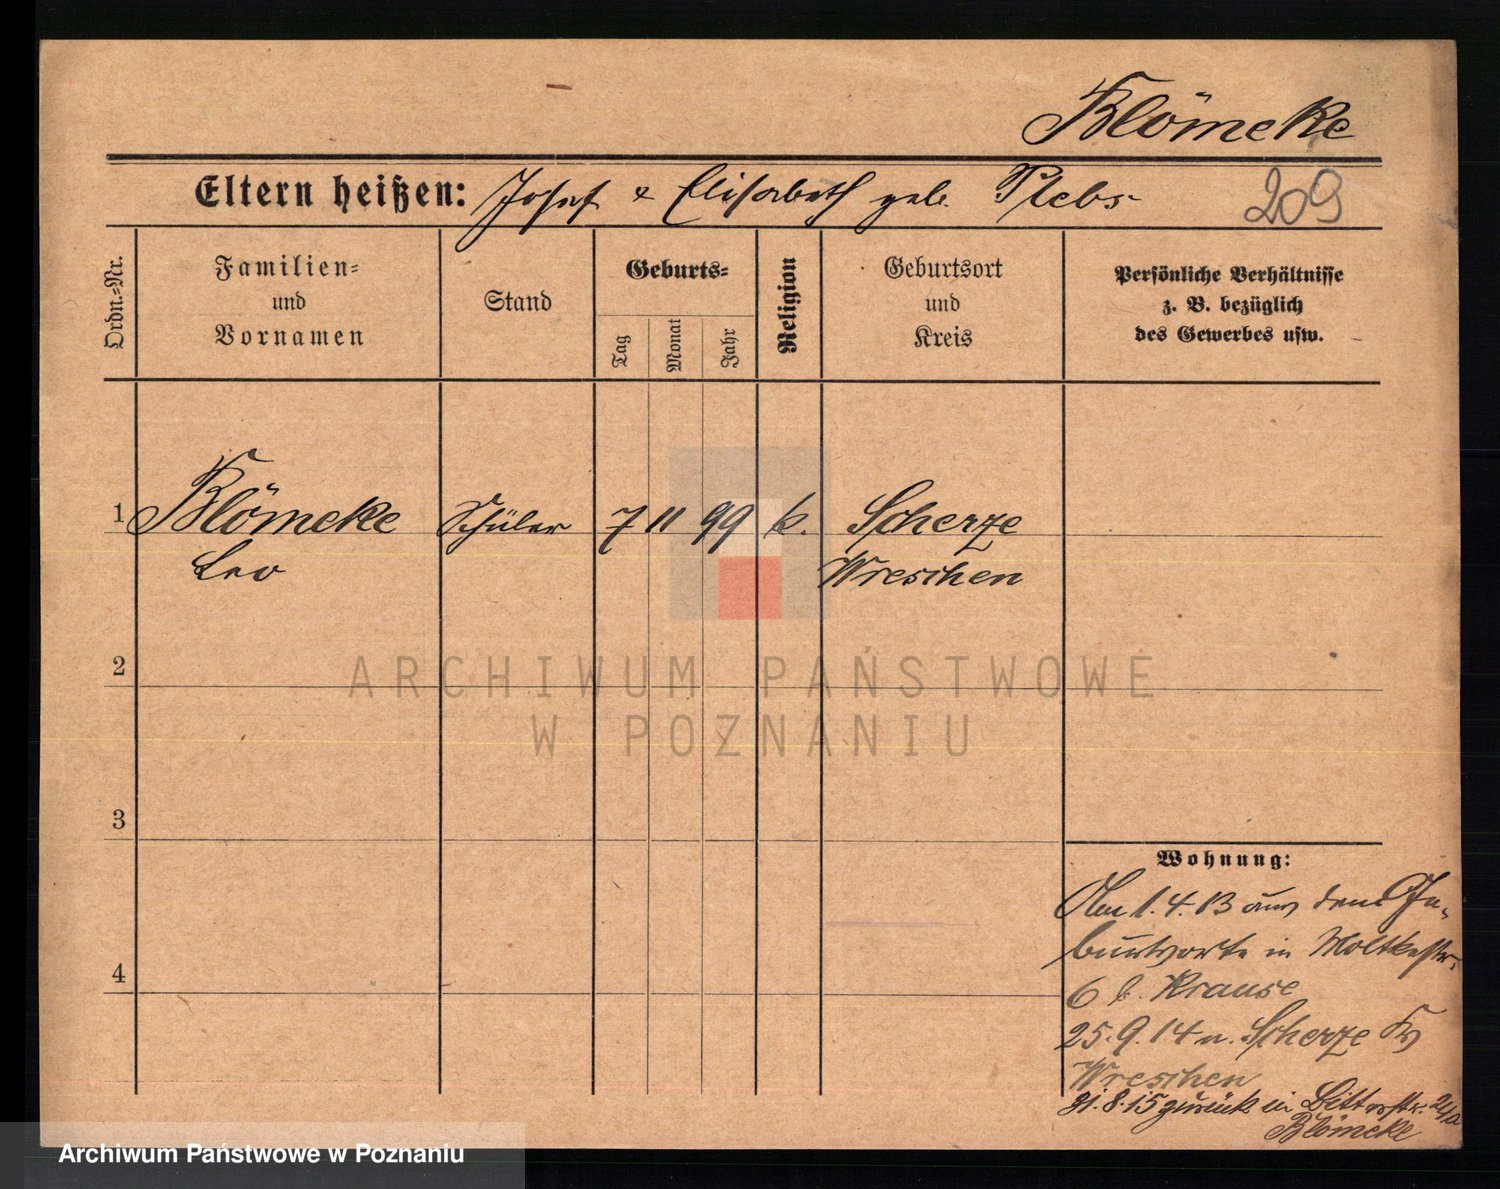 Blömeke
Eltern heißen: Josef & Elisabeth geb. Plebs
209
Ordn.-Nr.
Familien-
und
Vornamen
Stand
Geburts-
Tag
Monat
Jahr
Religion
Geburtsort
und
Kreis
Persönliche Verhältnisse
z. B. bezüglich
des Gewerbes usw.
1 Blömeke Schüler 7 11 99 k. Scherze
Leo Wreschen
2
ARCHIWUM PAŃSTWOWE
W POZNANIU
3
4
Wohnung:
Am 1.4.13 aus dem Ge-
burtsorte in Moltkestr.
6 b. Krause
25.9.14 n. Scherze Krs
Wreschen
31.8.15 zurück in 24a
Blömeke
Archiwum Państwowe w Poznaniu